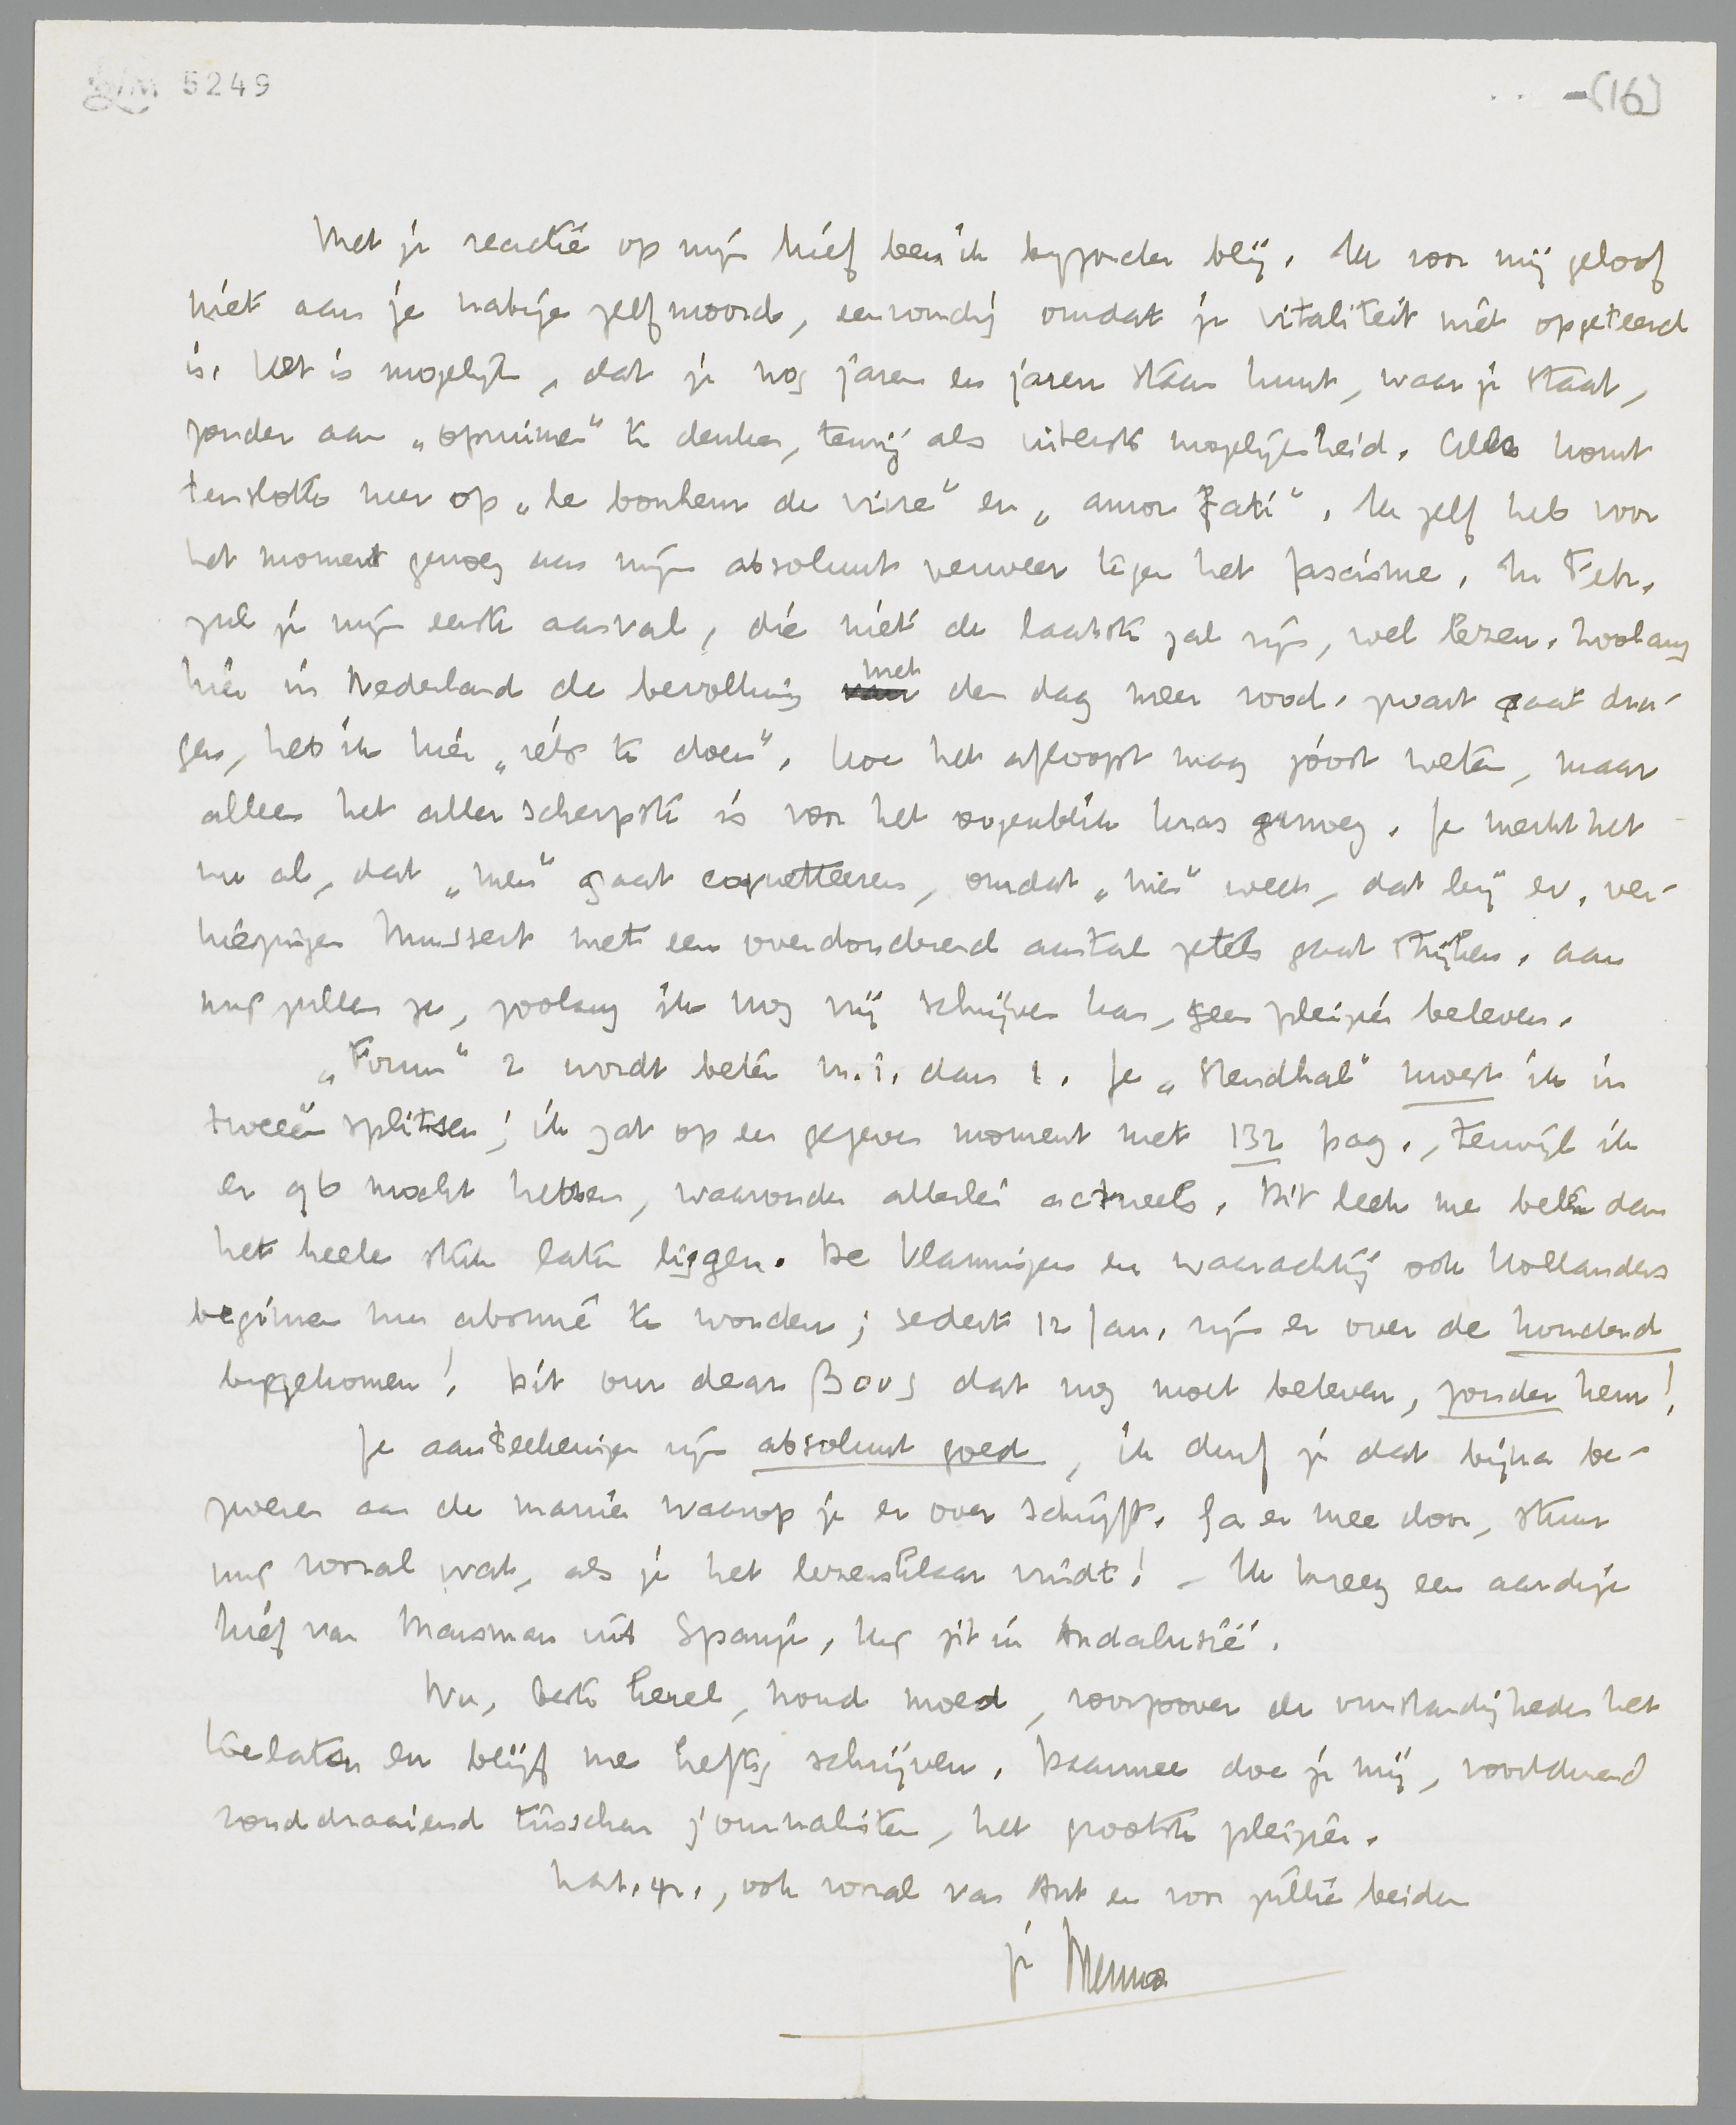 LM 5249
(16)
Met je reactie op mijn brief ben ik byzonder blij. Ik voor mij geloof
niet aan je nabije zelfmoord, eenvoudig omdat je vitaliteit niet opgeteerd
is. Het is mogelijk, dat je nog jaren en jaren staan kunt, waar je staat,
zonder aan „opruimen” te denken, tenzij als uiterste mogelijkheid. Alles komt
tenslotte neer op „le bonheur de vivre” en „amor fati”. Ik zelf heb voor
het moment genoeg aan mijn absoluut verweer tegen het fascisme. In Febr.
zul je mijn eerste aanval, die niet de laatste zal zijn, wel lezen. Zoolang
hier in Nederland de bevolking met den dag meer rood-zwart gaat dra-
gen, heb ik hier „iets te doen”. Hoe het afloopt mag joost weten, maar
alleen het allerscherpste is voor het oogenblik kras genoeg. Je merkt het
nu al, dat „men” gaat coquetteeren, omdat „men” weet, dat bij ev. ver-
kiezingen Mussert met een overdonderend aantal zetels gaat strijken. Aan
mij zullen ze, zoolang ik nog vrij schrijven kan, geen pleizier beleven.
„Forum” 2 wordt beter m.i. dan 1. Je „Stendhal” moest ik in
tweeën splitsen; ik zat op een gegeven moment met 132 pag., terwijl ik
er 96 mocht hebben, waaronder allerlei actueels. Dit leek me beter dan
het heele stuk laten liggen. De Vlamingen en waarachtig ook Hollanders
beginnen nu abonné te worden; sedert 12 Jan. zijn er over de honderd
bijgekomen! Dit our dear Bouws dat nog moet beleven, zonder hem!
Je aanteekeningen zijn absoluut goed, ik durf je dat bijna be-
zweren aan de manier waarop je er over schrijft. Ga er mee door, stuur
mij vooral wat, als je het lezensklaar vindt! – Ik kreeg een aardige
brief van Marsman uit Spanje, hij zit in Andalusië.
Nu, beste kerel, houd moed, voorzoover de omstandigheden het
toelaten en blijf me heftig schrijven. Daarmee doe je mij, voortdurend
ronddraaiend tusschen journalisten, het grootste pleizier.
hart. gr., ook vooral van Ant en voor jullie beiden
je Menno